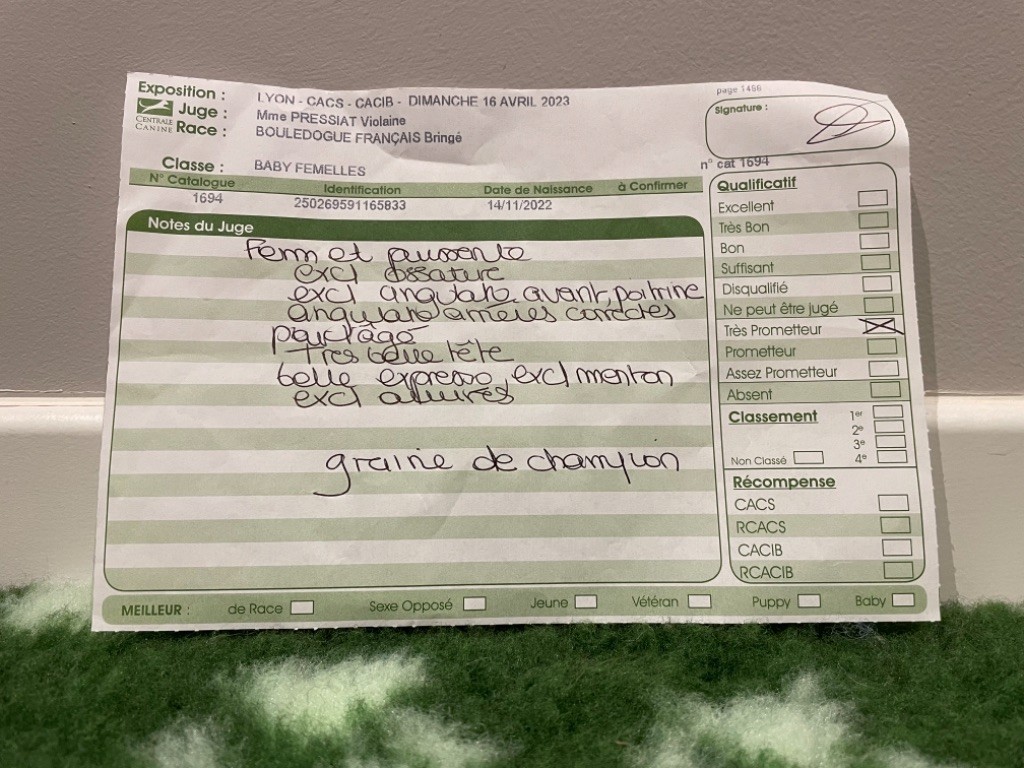 page 1466
Exposition : LYON - CACS - CACIB - DIMANCHE 16 AVRIL 2023
CENTRALE CANINE
Juge : Mme PRESSIAT Violaine
Race : BOULEDOGUE FRANÇAIS Bringé
Signature :
Classe : BABY FEMELLES
n° cat 1694
N° Catalogue Identification Date de Naissance à Confirmer
1694 250269591165833 14/11/2022
Notes du Juge
Fem et puissante
excl ossature
excl angulato avant, poitrine
angulato arrières correctes
Très belle tête
belle expresso, excl menton
excl allures
graine de champion
Qualificatif
Excellent
Très Bon
Bon
Suffisant
Disqualifié
Ne peut être jugé
Très Prometteur
Prometteur
Assez Prometteur
Absent
Classement 1er
2e
3e
Non Classé 4e
Récompense
CACS
RCACS
CACIB
RCACIB
MEILLEUR : de Race Sexe Opposé Jeune Vétéran Puppy Baby